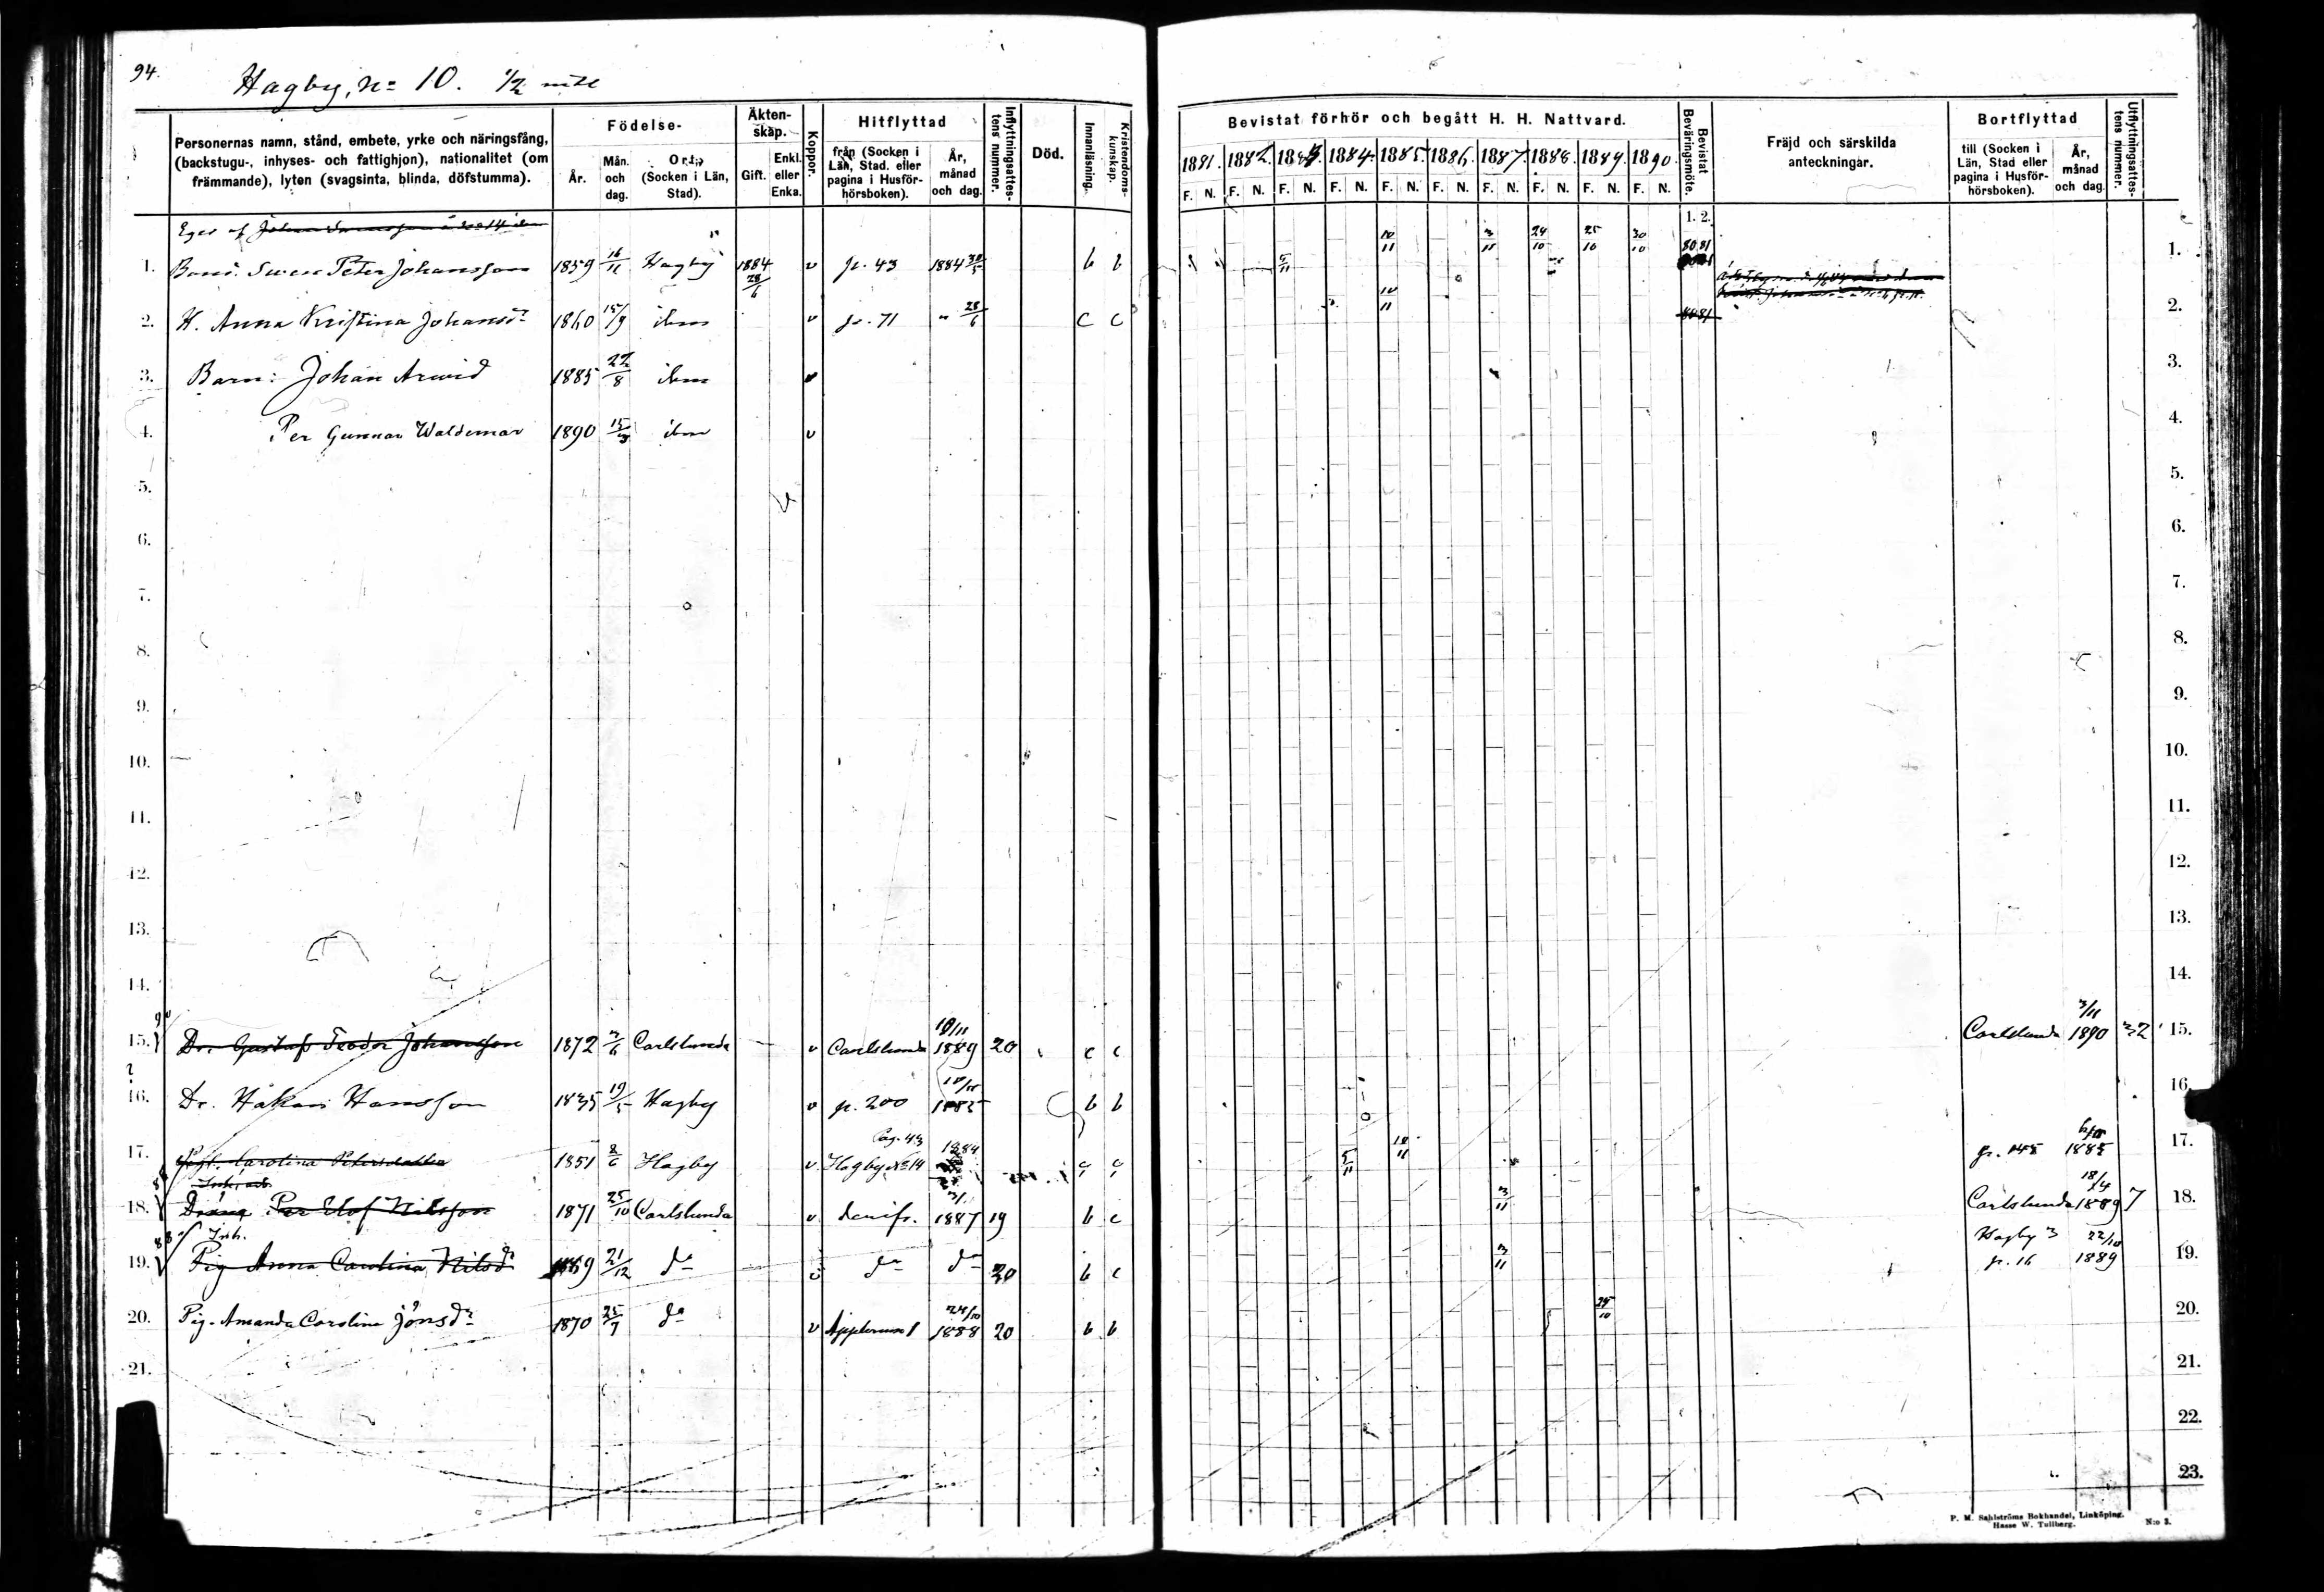 94.
Hagby, No 10. 1/2 mtl
Personernas namn, stånd, embete, yrke och näringsfång, (backstugu-, inhyses- och fattighjon), nationalitet (om främmande), lyten (svagsinta, blinda, döfstumma).
Födelse-
År.
Mån. och dag.
Ort, (Socken i Län, Stad).
Äktenskap.
Gift.
Enkl. eller Enka.
Koppor.
Hitflyttad
från (Socken i Län, Stad. eller pagina i Husförhörsboken).
År, månad och dag.
Inflyttningsattestens nummer.
Död.
Innanläsning.
Kristendomskunskap.
Bevistat förhör och begått H. H. Nattvard.
1881. 1882. 1883. 1884. 1885. 1886. 1887. 1888. 1889. 1890.
F. N. F. N. F. N. F. N. F. N. F. N. F. N. F. N. F. N. F. N.
Bevistat Beväringsmöte.
1. 2.
Fräjd och särskilda anteckningar.
Bortflyttad
till (Socken i Län, Stad eller pagina i Husförhörsboken).
År, månad och dag.
Utflyttningsattestens nummer.
Eges af Johan
1. Bond. Swen Peter Johansson 1859 16/11 Hagby 1884 28/6 v p. 43 1884 b b 5/11 10/11 3/11 24/10 25/10 30/10 80 81 1.
2. H. Anna Kristina Johansdr 1860 15/9 ibm v p. 71 " 28/6 c c 10/11 2.
3. Barn: Johan Arwid 1885 22/8 ibm v 3.
4. Per Gunnar Waldemar 1890 ibm v 4.
5. 5.
6. 6.
7. 7.
8. 8.
9. 9.
10. 10.
11. 11.
12. 12.
13. 13.
14. 14.
15. Dr. Gustaf Teodor Johansson 1872 3/6 Carlslunda v Carlslunda 10/11 1889 20 c c Carlslunda 3/11 1890 32 15.
16. Dr. Håkan Hansson 1835 19/5 Hagby v p. 200 b b 16.
17. Carolina Petersdotter 1851 8/6 Hagby v Pag. 43 Hagby No 14 1884 c c 5/11 10/11 p. 1885 17.
18. Dräng Per Elof Nilsson 1871 25/10 Carlslunda v 1887 19 b c 3/11 Carlslunda 18/4 1889 7 18.
Inh.
19. Pig Anna Carolina Nilsdr 1869 21/12 do v do do 20 b c 3/11 Hagby 3 p. 16 22/10 1889 19.
20. Pig. Amanda Carolina Jönsdr 1870 25/7 do v 24/10 1888 20 b b 25/10 20.
21. 21.
22.
23.
P. M. Sahlströms Bokhandel, Linköping.
Hasse W. Tullberg.
N:o 3.